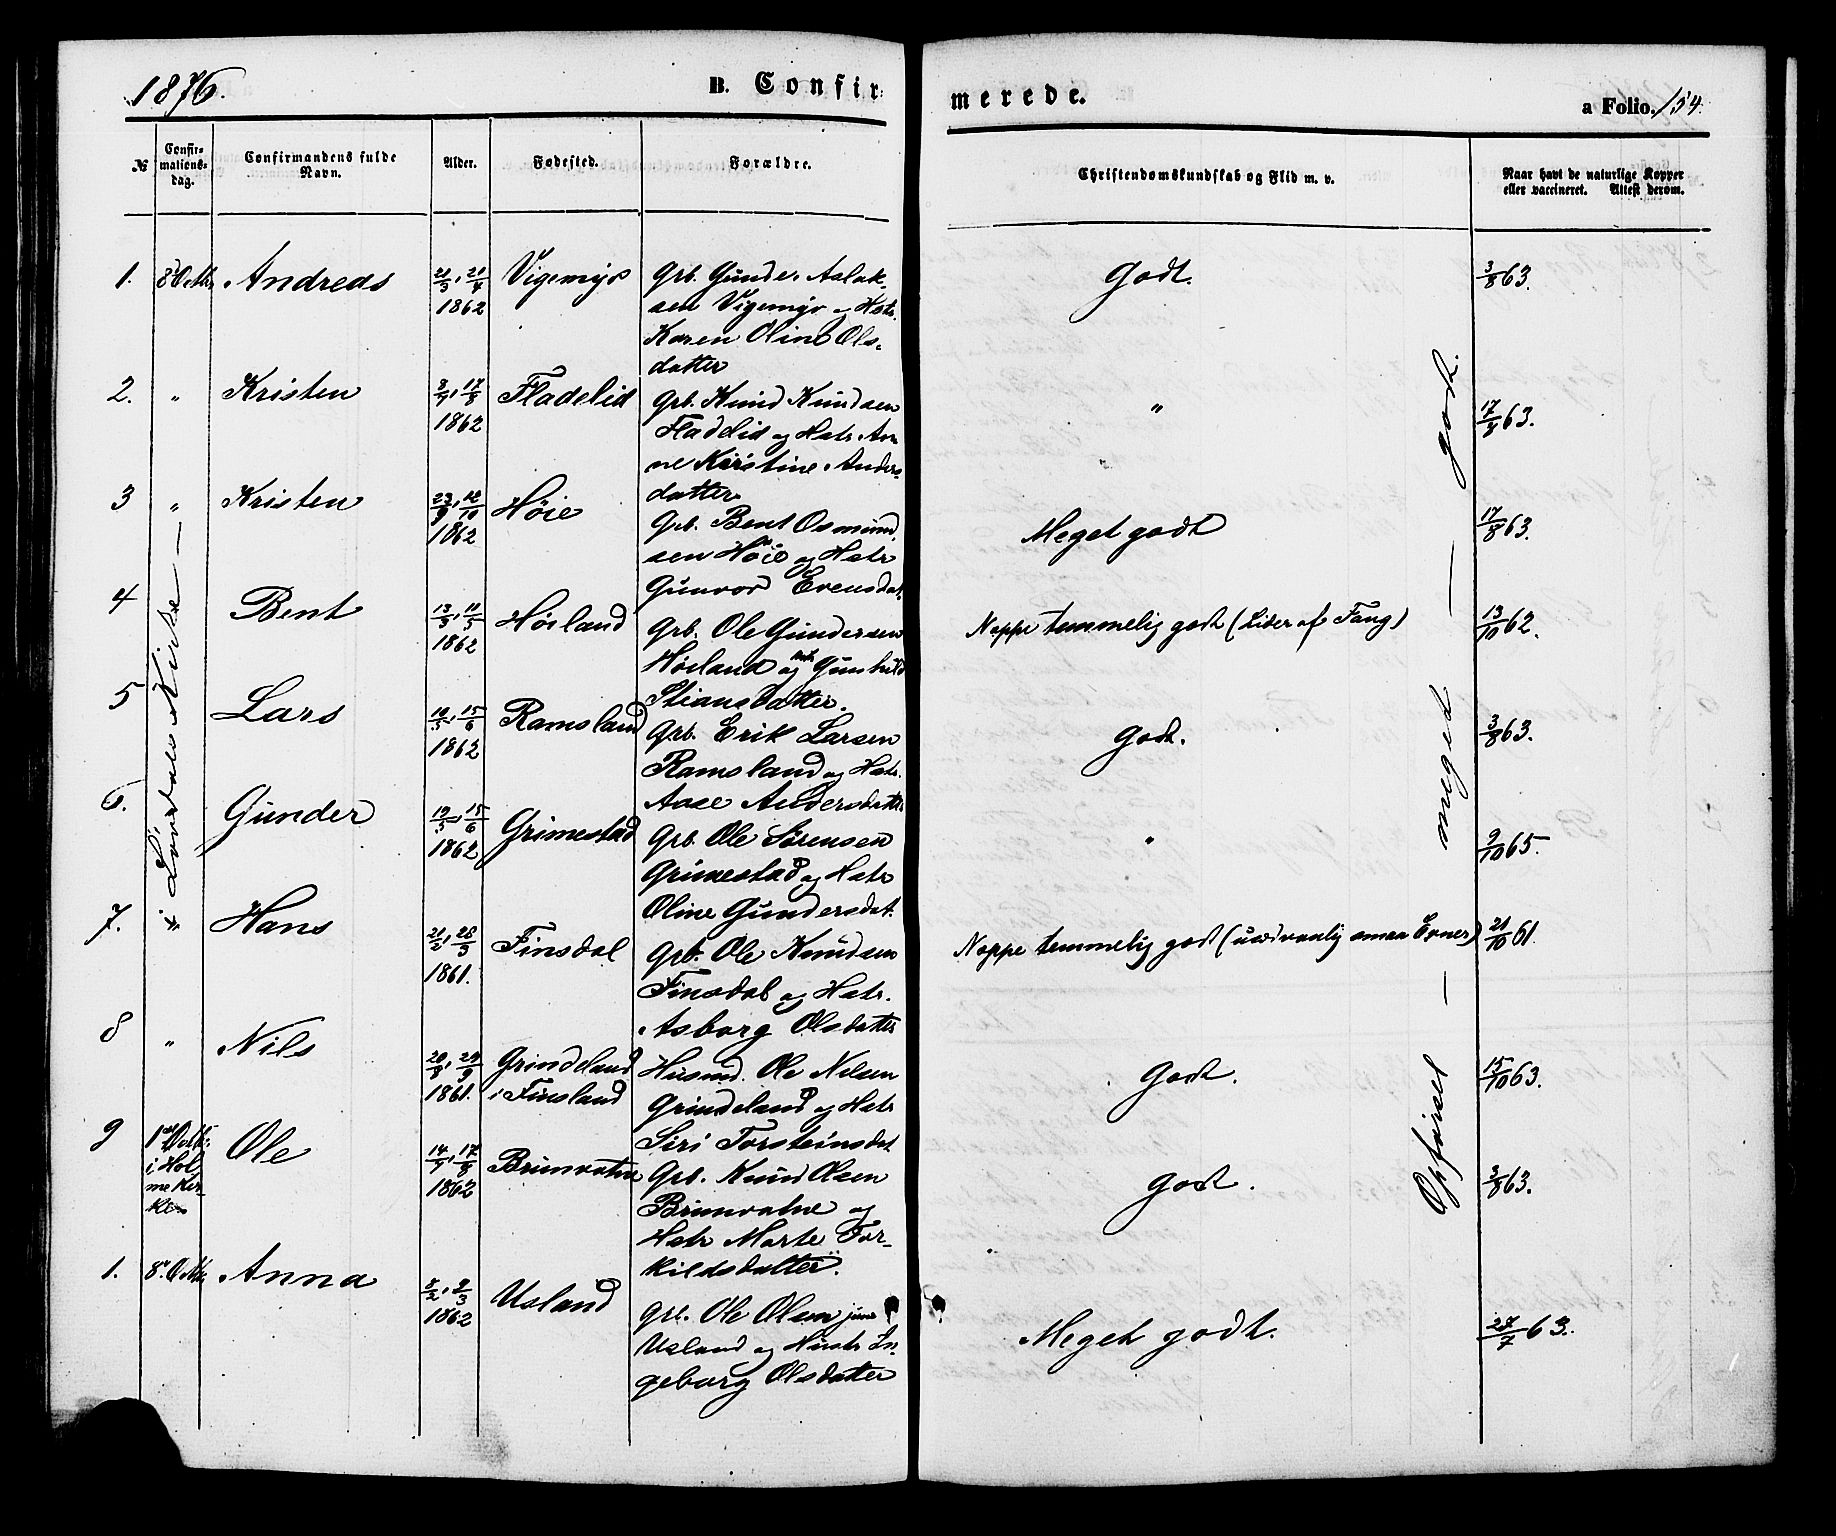 1876.
B. Confir
merede.
a Folio. 154.
№
Confir-
mations-
dag.
Confirmandens fulde
Navn.
Alder.
Fødested.
Forældre.
Christendomskundskab og Flid m. v.
Naar havt de naturlige Kopper
eller vaccineret. Attest derom.
1.
8 Octbr.
Andreas
1862
Vigemyr
Grb. Gunder Aslak-
sen Vigemyr og Hstr.
Karen Oline Ols-
datter
Godt.
3/8 63.
2.
"
Kristen
1862
Fladelid
Grb. Knud Knudsen
Fladelid og Hstr. An
ne Kirstine Anders
datter
"
17/8 63.
3
"
Kristen
1862
Høie
Grb. Bent Osmund
sen Høie og Hstr
Gunvor Evensdat.
Meget godt
17/8 63.
4
Bent
13/3, 11/5
1862
Høiland
Grb. Ole Gundersen
Høiland og Hstr Gunhild
Stiansdatter.
Noppe temmelig godt (Lider af Tang)
13/10 62.
5
Lars
1862
Ramsland
Grb. Erik Larsen
Ramsland og Hstr.
Aase Andersdatter
Godt.
3/8 63.
6.
Gunder
1862
Grimestad
Grb. Ole Sørensen
Grimestad og Hstr
Oline Gundersdat.
"
9/10 65.
7.
"
Hans
21/2, 28/3
1861.
Finsdal
Grb. Ole Knudsen
Finsdal og Hstr.
Asborg Olsdatter
Noppe temmelig godt (usædvanlig smaa Evner)
21/10 61.
8
"
Nils
20/8, 29/9
1861.
Grindeland
i Finsland
Husmd. Ole Nilsen
Grindeland og Hstr
Siri Torsteinsdat
Godt.
15/10 63.
9
1ste Octbr.
i Hol
me Kir-
ken
Ole
1862
Brunvatne
Grb. Knud Olsen
Brunvatne og
Hstr Marte Tor-
kildsdatter.
Godt.
3/8 63.
1.
8de Octbr.
Anna
8/2, 9/3
1862
Usland
Grb. Ole Olsen jun
Usland og Hustr In-
geborg Olsdatter
Meget godt.
27/7 63.
i Løvdals Kirke —
Opførsel — meget — godt.